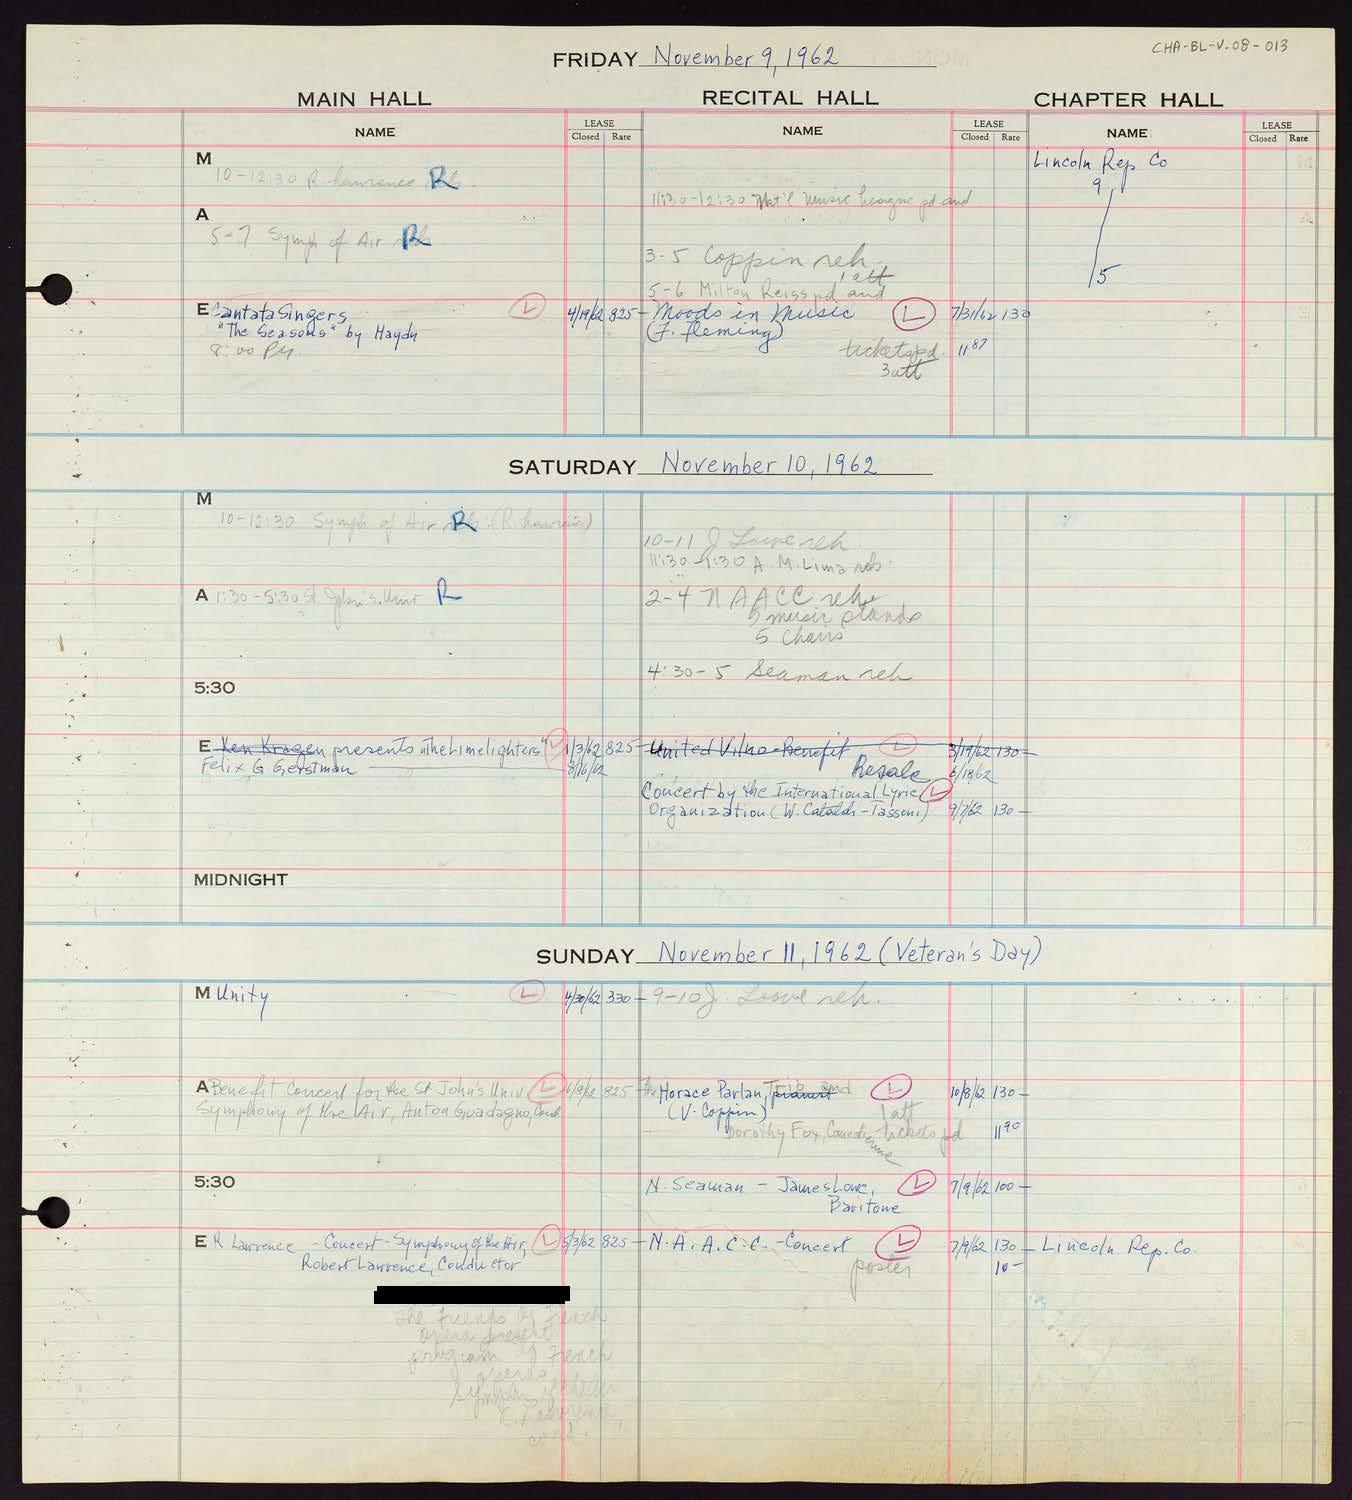 CHA-BL-V.08-013
FRIDAY November 9, 1962
MAIN HALL
RECITAL HALL
CHAPTER HALL
NAME
LEASE
Closed Rate
NAME
LEASE
Closed Rate
NAME
LEASE
Closed Rate
M
10-12:30 R. Lawrence R
11:30-12:30 Nat'l Music League pd and
Lincoln Rep Co
9
5
A
5-7 Symph of Air R
3-5 Coppin reh.
1 att
5-6 Milton Reiss pd and
E Cantata Singers L 4/19/62 825-
"The Seasons" by Haydn
8:00 PM
Moods in Music L 7/31/62 130
(J. Fleming)
tickets pd. 11 87
3 att
SATURDAY November 10, 1962
M
10-12:30 Symph of Air R (R. Lawrence)
10-11 J Lowe reh
11:30-1:30 A. M. Lima reh
A 1:30-5:30 St John's Univ R
2-4 NAACC reh
5 music stands
5 chairs
4:30-5 Seaman reh
5:30
E Ken Kragen presents "The Limelighters" L 1/3/62 825-
Felix G Gerstman 8/16/62
United Vilno-Benefit L 3/19/62 130-
Resale 6/18/62
Concert by the International Lyric L
Organization (W. Cataldi-Tassoni) 9/7/62 130-
MIDNIGHT
SUNDAY November 11, 1962 (Veteran's Day)
M Unity L 4/30/62 330-
9-10 J. Lowe reh.
A Benefit Concert for the St John's Univ L 6/8/62 825
Symphony of the Air, Anton Guadagno, Cond
The Horace Parlan, pianist Trio and L 10/8/62 130-
(V. Coppin) 1 att
Dorothy Fox, Comedienne tickets pd 11 90
5:30
N. Seaman - James Lowe, L 7/9/62 100-
Baritone
E R Lawrence - Concert - Symphony of the Air, L 5/3/62 825-
Robert Lawrence, Conductor
N.A.A.C.C. - Concert L 7/9/62 130-
poster 10-
Lincoln Rep. Co.
The Friends of French
opera present
program of French